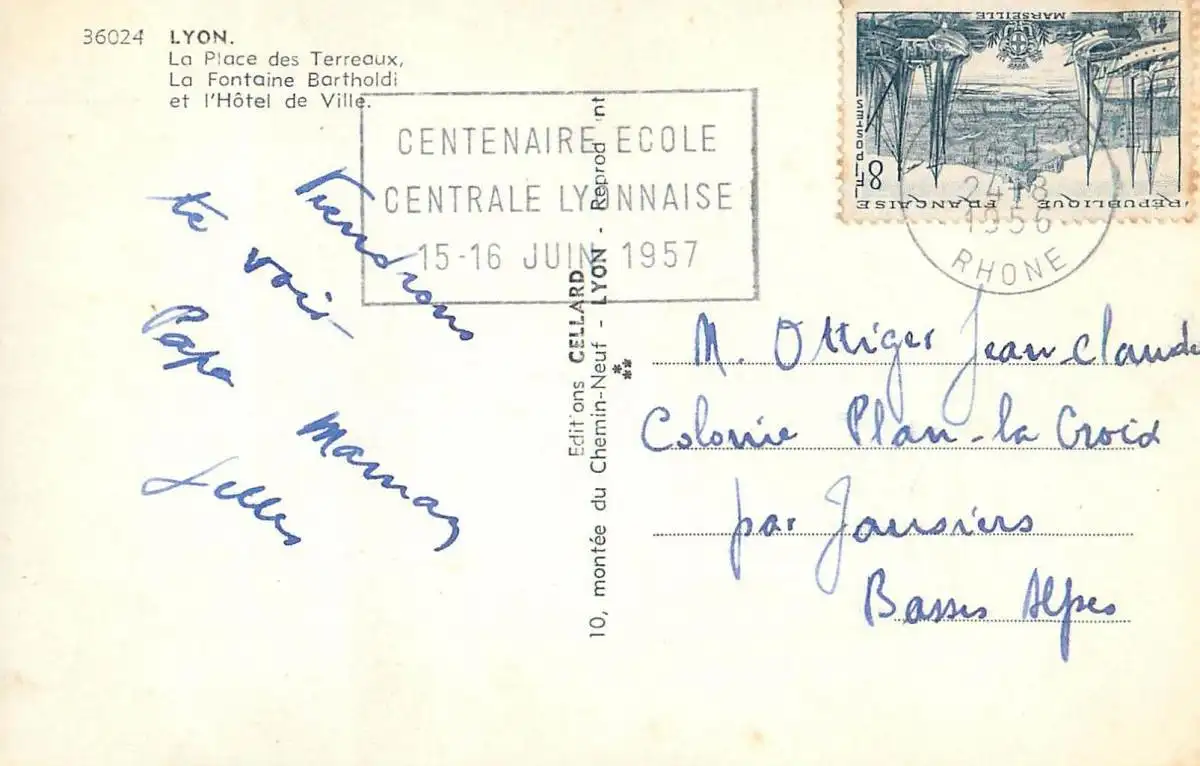 36024 LYON.
La Place des Terreaux,
La Fontaine Bartholdi
et l'Hôtel de Ville.
CENTENAIRE ECOLE
CENTRALE LYONNAISE
15-16 JUIN 1957
MARSEILLE
8F POSTES
RÉPUBLIQUE FRANÇAISE
24-8
1956
RHONE
Viendrons
te voir
Papa Maman
Gilles
Editions CELLARD
10, montée du Chemin-Neuf - LYON - Reprod int
M. Ottiger Jean-Claude
Colonie Plan-la Croix
par Jausiers
Basses Alpes